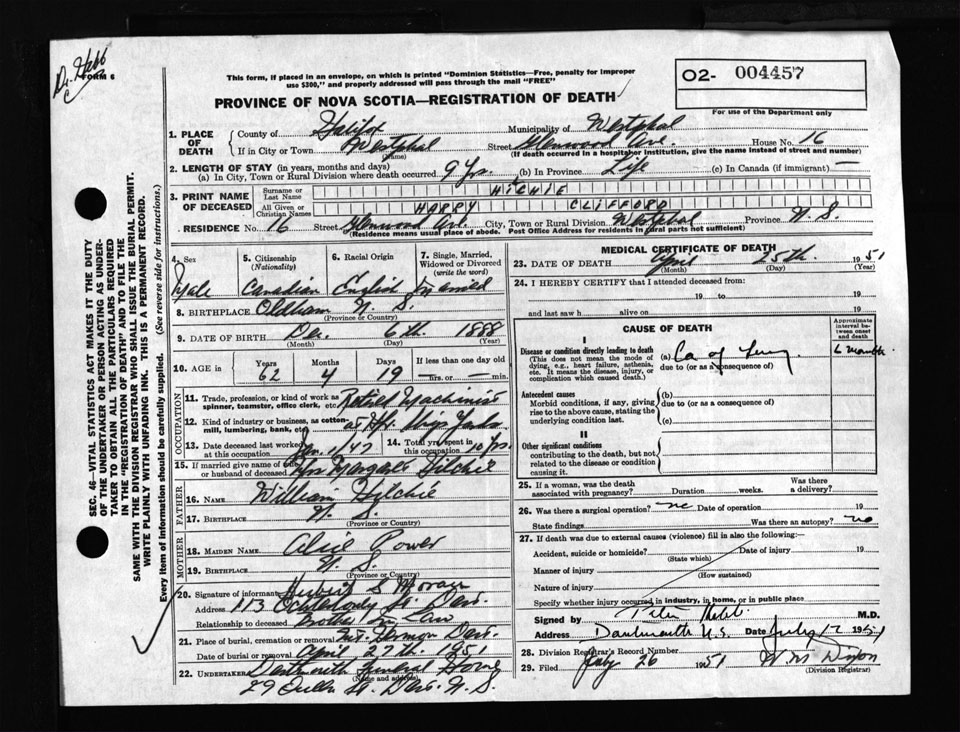 Dr. Hebb
FORM 6
C
This form, if placed in an envelope, on which is printed "Dominion Statistics—Free, penalty for improper
use $300," and properly addressed will pass through the mail "FREE"
O2- 004457
For use of the Department only
PROVINCE OF NOVA SCOTIA—REGISTRATION OF DEATH
1. PLACE OF DEATH
County of Halifax Municipality of Westphal
If in City or Town Westphal Street Glenwood Ave. House No. 16
(Name) (If death occurred in a hospital or institution, give the name instead of street and number)
2. LENGTH OF STAY (in years, months and days)
(a) In City, Town or Rural Division where death occurred 9 Yrs. (b) In Province Life (c) In Canada (if immigrant) —
3. PRINT NAME OF DECEASED
Surname or Last Name HICHIE
All Given or Christian Names HARRY CLIFFORD
RESIDENCE No. 16 Street Glenwood Ave. City, Town or Rural Division Westphal Province N. S.
(Residence means usual place of abode. Post Office Address for residents in rural parts not sufficient)
4. Sex Male
5. Citizenship (Nationality) Canadian
6. Racial Origin English
7. Single, Married, Widowed or Divorced (write the word) Married
8. BIRTHPLACE Oldham N. S.
(Province or Country)
9. DATE OF BIRTH Dec. 6th 1888
(Month) (Day) (Year)
10. AGE in Years Months Days If less than one day old
62 4 19 — hrs. or — min.
OCCUPATION
11. Trade, profession, or kind of work as spinner, teamster, office clerk, etc. Retired Machinist
12. Kind of industry or business, as cotton-mill, lumbering, bank, etc. at Hfx.
13. Date deceased last worked at this occupation Jan. 1/47
14. Total yrs. spent in this occupation 10 Yrs.
15. If married give name of wife or husband of deceased Mrs Margaret Hitchie
FATHER
16. NAME William Hitchie
17. BIRTHPLACE N. S.
(Province or Country)
MOTHER
18. MAIDEN NAME Alice Power
19. BIRTHPLACE N. S.
(Province or Country)
20. Signature of informant Herbert S
Address 113 St. Dart.
Relationship to deceased Brother In Law
21. Place of burial, cremation or removal Mt. Hermon Dart.
Date of burial or removal April 27th 1951
22. UNDERTAKER Dartmouth Funeral Home
29 Queen St. Dart. N. S.
MEDICAL CERTIFICATE OF DEATH
23. DATE OF DEATH April 25th. 1951
(Month) (Day) (Year)
24. I HEREBY CERTIFY that I attended deceased from:
19 to 19
and last saw h alive on 19
CAUSE OF DEATH
Approximate interval between onset and death
I
Disease or condition directly leading to death (a) Ca of Lung 6 months
(This does not mean the mode of dying, e.g., heart failure, asthenia, etc. It means the disease, injury, or complication which caused death.)
due to (or as a consequence of)
Antecedent causes
Morbid conditions, if any, giving rise to the above cause, stating the underlying condition last.
(b)
due to (or as a consequence of)
(c)
II
Other significant conditions
contributing to the death, but not related to the disease or condition causing it.
25. If a woman, was the death associated with pregnancy? Duration weeks. Was there a delivery?
26. Was there a surgical operation? no Date of operation 19
State findings Was there an autopsy? no
27. If death was due to external causes (violence) fill in also the following:—
Accident, suicide or homicide? Date of injury 19
(State which)
Manner of injury
(How sustained)
Nature of injury
Specify whether injury occurred in industry, in home, or in public place
Signed by Hebb M.D.
Address Dartmouth N.S. Date July 17 1951
28. Division Registrar's Record Number
29. Filed July 26 1951 W M Dixon
(Division Registrar)
SEC. 46—VITAL STATISTICS ACT MAKES IT THE DUTY
OF THE UNDERTAKER OR PERSON ACTING AS UNDER-
TAKER TO OBTAIN ALL THE PARTICULARS REQUIRED
IN THE "REGISTRATION OF DEATH" AND TO FILE THE
SAME WITH THE DIVISION REGISTRAR WHO SHALL ISSUE THE BURIAL PERMIT.
WRITE PLAINLY WITH UNFADING INK. THIS IS A PERMANENT RECORD.
Every item of information should be carefully supplied. (See reverse side for instructions.)